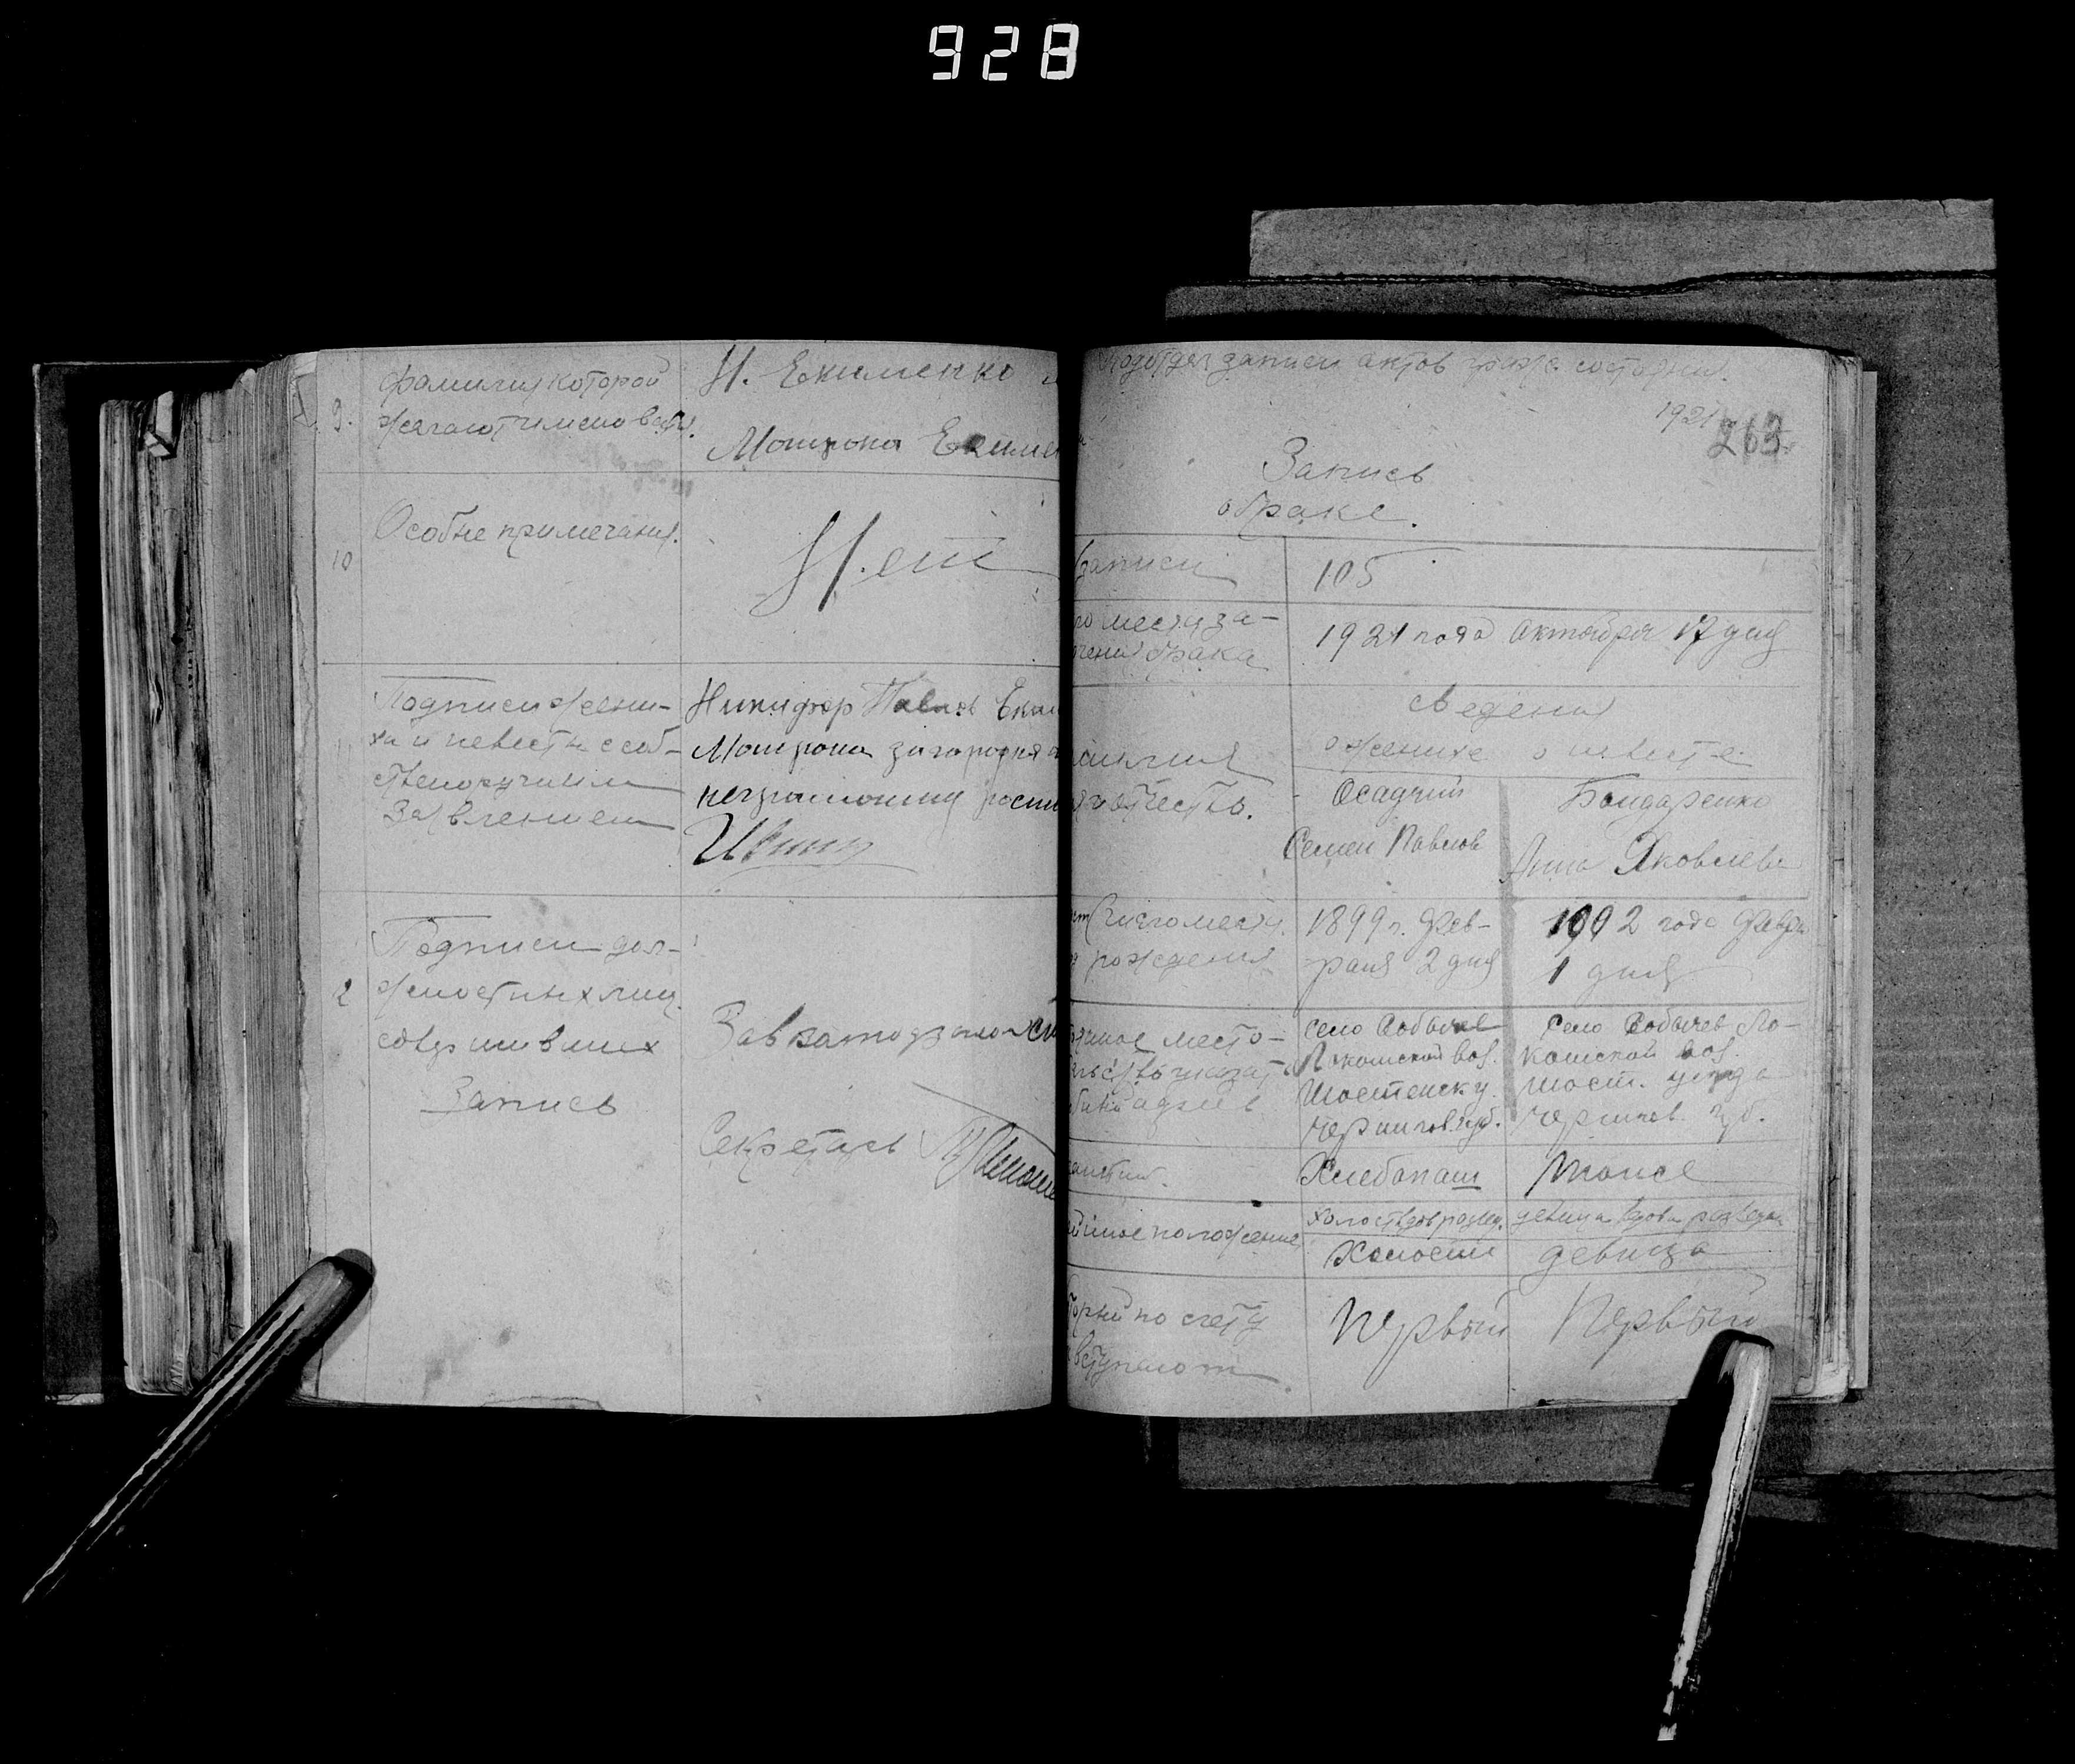 928
9.
фамилия которой
желают именоваться.
Н. Екименко
Матрона Екиме
10
Особые примечания.
Нет
Подписи жени-
ха и невесты с соб-
ственоручным
Заявлением
Никифор Павлов Еким
Матрона загородня
неграмотны роспи
2
Подписи дол-
жностных лиц.
совершивших
Запись
Секретарь
Подотдел записи актов гражс. состояния.
1921
263
Запись
о браке.
записи
105
ло месяц за-
чения брака
1921 года Октября 17 дня
Сведения
о женихе о невесте
амилия
я и отчество.
Осадчий
Семен Павлов
Бондаренко
Анна Яковлева
число месяц.
рождения
1899 г. Фев-
раля 2 дня
1902 года Февра
1 дня
место-
адрес
Село Собычев
Шостенск у.
Чернигов. губ.
Село Собычев Ло-
комской вол.
Шост. уезда
Чернигов. губ.
анятий.
Хлебопаш
Тоже
ейное положение
холост вдов развед.
девица вдова разведен
Холост
девица
торый по счету
вступают
Первый
Первый